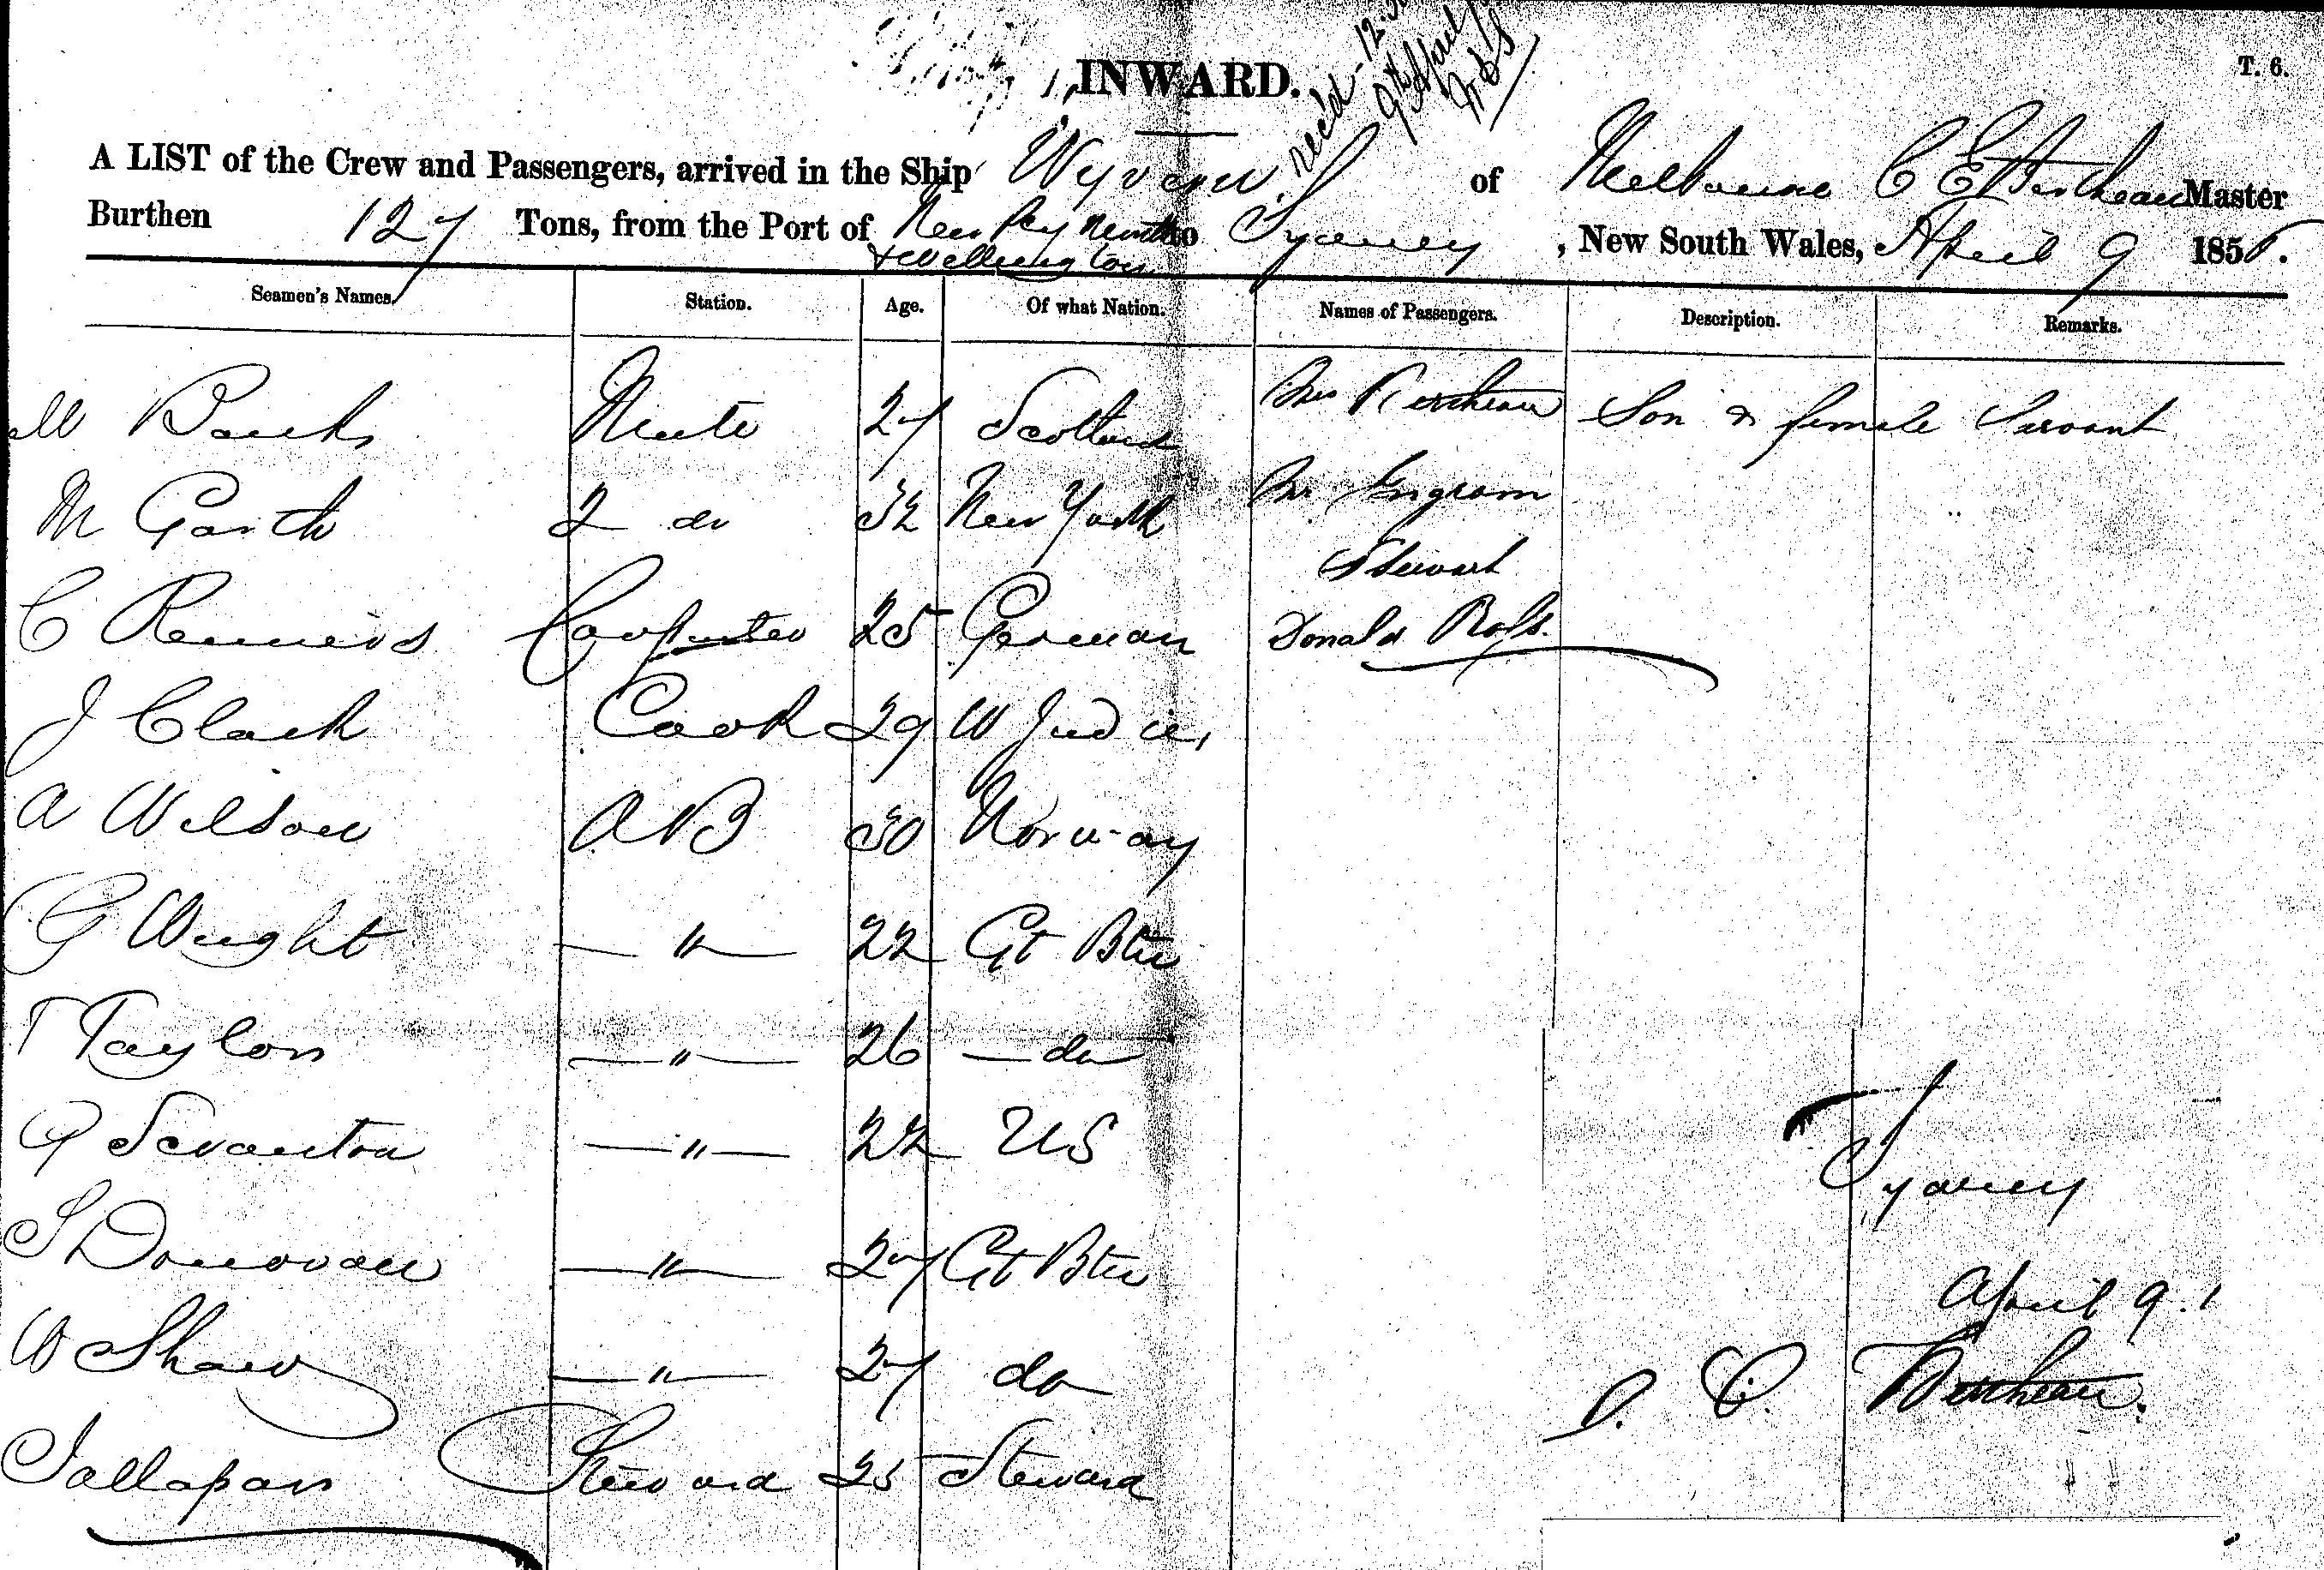 T. 6.
INWARD.
rec'd 12
9th April
A LIST of the Crew and Passengers, arrived in the Ship Wyvern of Melbourne C E Bertheau Master
Burthen 127 Tons, from the Port of New Plymouth to Sydney, New South Wales, April 9 185
& Wellington
Seamen's Names. Station. Age. Of what Nation. Names of Passengers. Description. Remarks.
W Banks Mate 27 Scotland Mrs Bertheau Son & female Servant
M Garth 2 do 32 New York Mr Ingram
Stewart
C Remeros Carpenter 25 German Donald Ross.
J Clark Cook 29 W Indies
A Wilson AB 30 Norway
G Wright — " — 22 Gt Btn
T Taylor — " — 26 — do
G Scranton — " — 22 US
Sydney
S Donovan — " — 27 Gt Btn
April 9.
W Shaw — " — 27 do
C. Bertheau.
Jallapan Steward 25 Steward